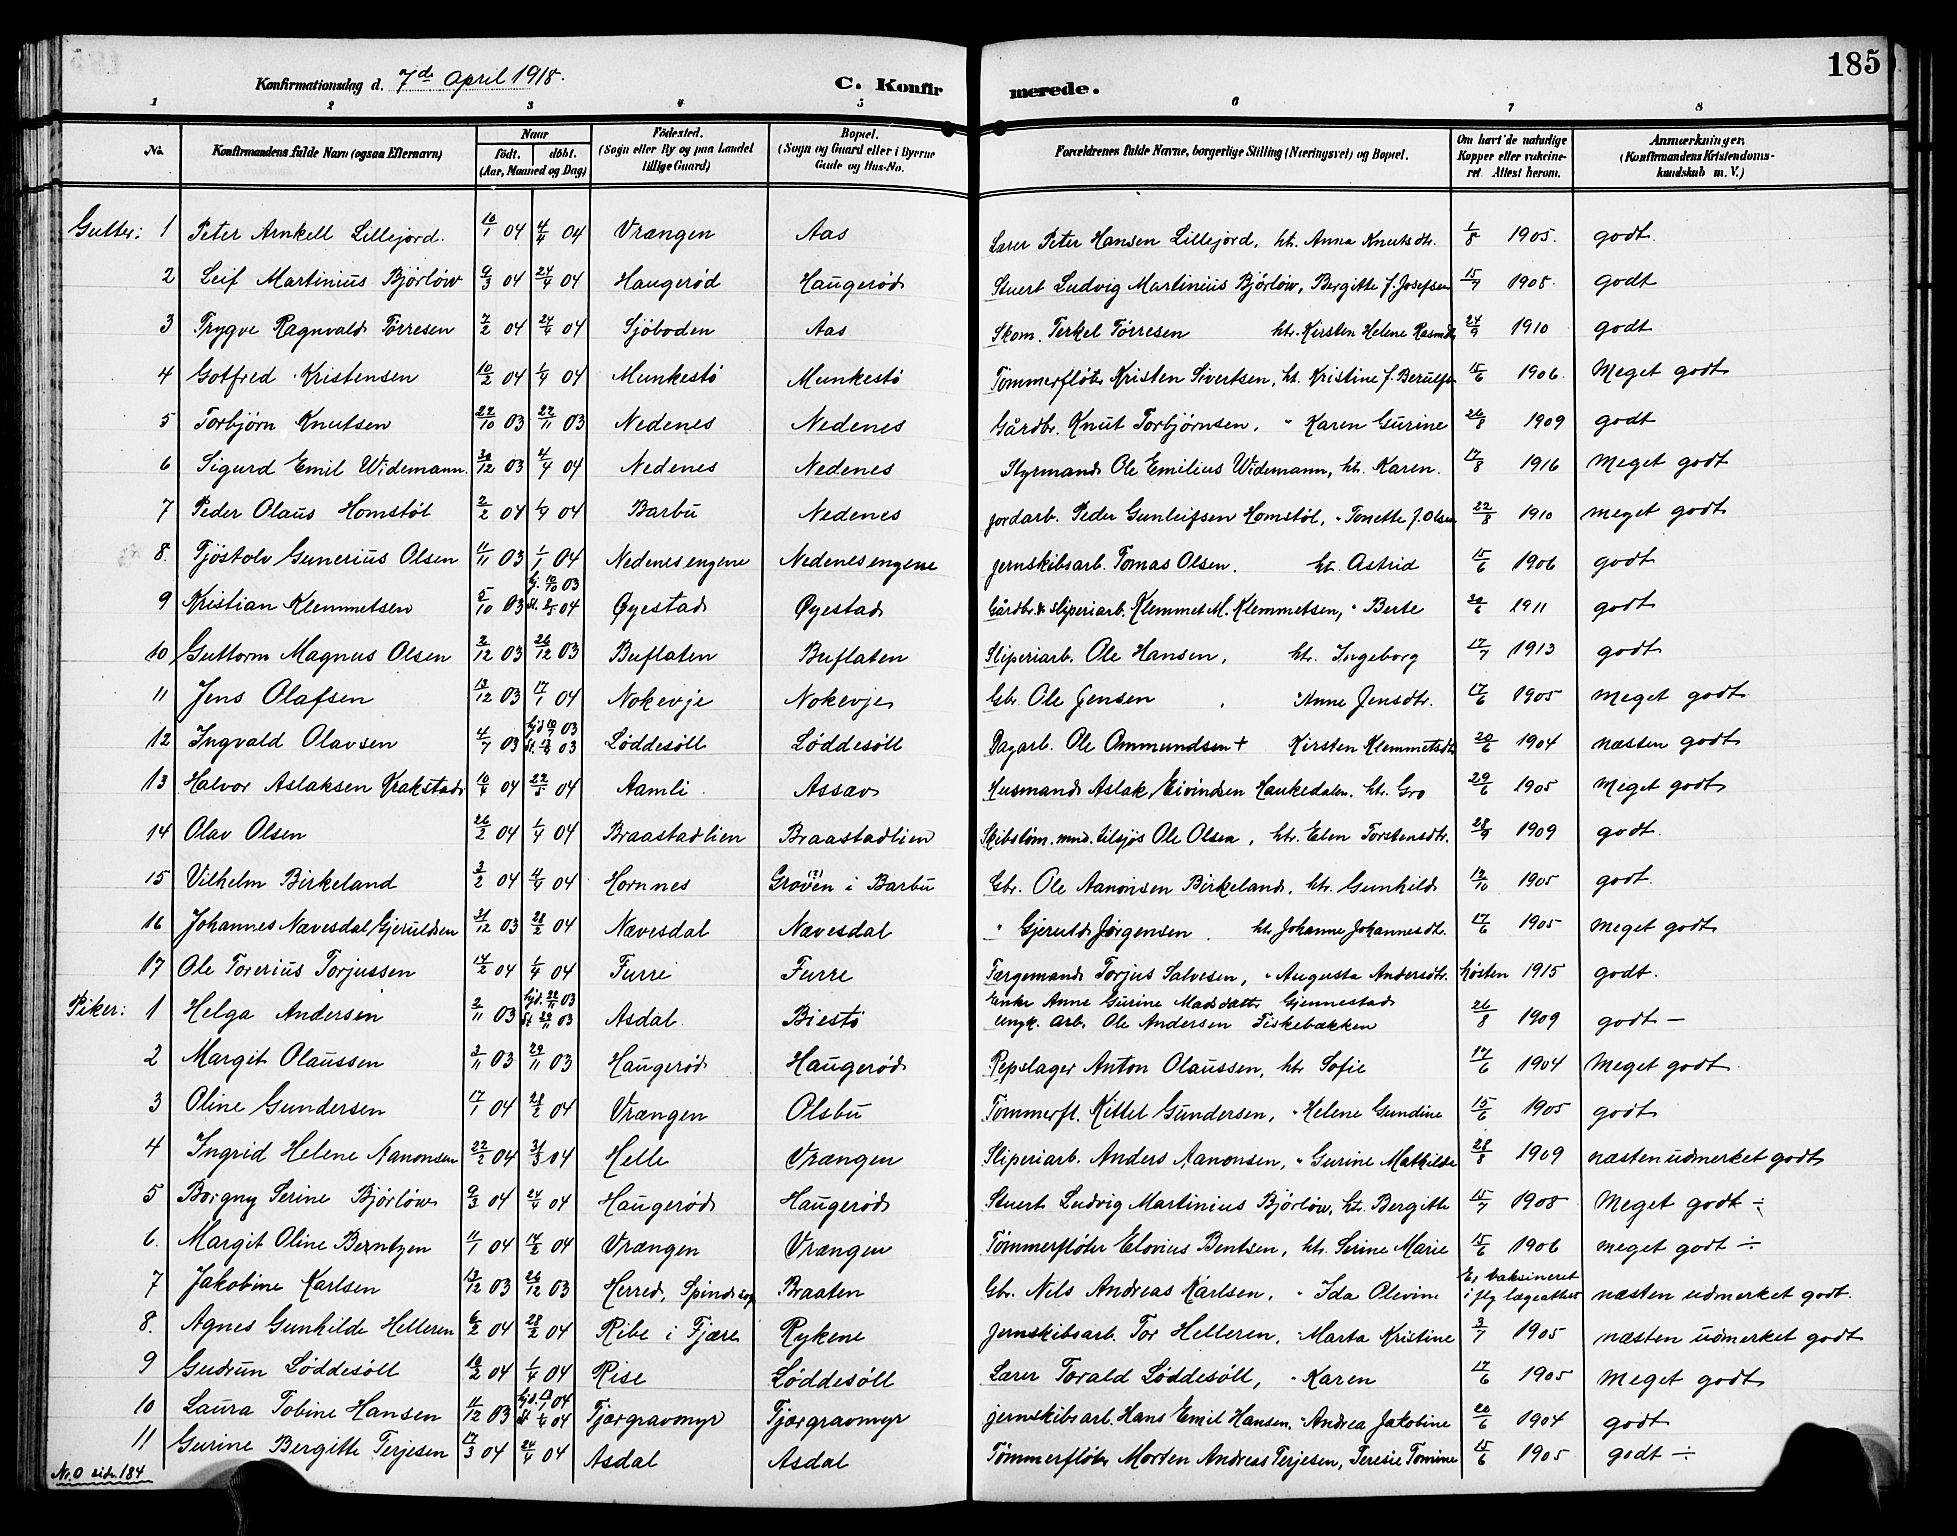 185
Konfirmationsdag d. 7de April 1918. C. Konfirmerede.
1 2 3 4 5 6 7 8
No. Konfirmandens fulde Navn (ogsaa Efternavn) Naar födt. döbt. (Aar, Maaned og Dag) Födested. (Sogn eller By og paa Landet tillige Gaard) Bopæl. (Sogn og Gaard eller i Byerne Gade og Hus-No. Forældrenes fulde Navne, borgerlige Stilling (Næringsvei) og Bopæl. Om havt de naturlige Kopper eller vakcineret Attest herom. Anmærkninger. (Konfirmandens Kristendomskundskab m. V.)
Gutter: 1 Peter Arnkell Lillejord. 10/1 04 4/4 04 Vrængen Aas Lærer Peter Hansen Lillejord, htr. Anna Knutsdtr. 1/8 1905. godt.
2 Leif Martinius Bjørløw 9/3 04 24/4 04 Haugerød Haugerød Stuert Ludvig Martinius Bjørløw, Bergitte f. Josefsen 15/7 1908. godt
3 Trygve Ragnvald Tørresen 7/2 04 24/4 04 Sjöboden Aas Skom. Terkel Tørresen htr. Kirsten Helene Rasmdtr 24/9 1910 godt
4 Gotfred Kristensen 10/2 04 1/4 04 Munkestö Munkestö Tømmerfløter Kristen Sivertsen, ht. Kristine f. Berulfsen 15/6 1906. Meget godt
5 Torbjørn Knutsen 22/10 03 22/11 03 Nedenes Nedenes Gårdbr. Knut Torbjørnsen, " Karen Gurine 26/8 1909 godt
6 Sigurd Emil Widemann. 30/12 03 4/4 04 Nedenes Nedenes Styrmand Ole Emilius Widemann, ht. Karen. 17/8 1916 meget godt
7 Peder Olaus Homstøl 2/2 04 1/4 04 Barbu Nedenes jordarb. Peder Gunleifsen Homstøl, " Tonette f. Olsen 22/8 1910 meget godt
8. Tjöstolv Gunerius Olsen 11/11 03 1/1 04 Nedenesengene Nedenesengene jernskibsarb. Tomas Olsen. ht. Astrid 15/6 1906 godt
9 Kristian Klemmetsen 5/10 03 hj. 10/10 03 st. 04 Øyestad Øyestad Gårdbr. & sliperiarb. Klemmet M. Klemmetsen, " Berte 30/6 1911 godt
10 Guttorm Magnus Olsen 2/12 03 26/12 03 Buflaten Buflaten Sliperiarb. Ole Hansen, htr. Ingeborg 17/7 1913 godt
11 Jens Olafsen 13/12 03 17/1 04 Nokevje Nokevje Gbr. Ole Jensen, " Anne Jensdtr. 17/6 1905 meget godt
12 Ingvald Olavsen 4/7 03 hjd 03 st. 03 Løddesöll Løddesöll Dagarb. Ole Ommundsen + Kirsten Klemmetsdtr 20/6 1904 næsten godt
13 Halvor Aslaksen Krakstad 10/4 04 22/5 04 Aamli Assæv Husmand Aslak Eivindsen Haukedalen. ht. Gro 29/6 1905 Meget godt
14 Olav Olsen 26/2 04 1/4 04 Braastadlien Braastadlien Skibstøm. mnd. tilsjøs Ole Olsen, htr. Elen Torstensdtr. 28/9 1909 godt.
15 Vilhelm Birkeland 3/2 04 4/4 04 Hornnes Groven (?) i Barbu Gbr. Ole Aanonsen Birkeland, htr. Gunhild 13/10 1905 godt.
16 Johannes Nævesdal Gjeruldsen 31/12 03 28/2 04 Nævesdal Nævesdal " Gjeruld Jørgensen. ht. Johanne Johannesdtr. 17/6 1905 meget godt
17 Ole Torerius Torjussen 14/2 04 1/4 04 Furre Furre Færgemand Torjus Salvesen, " Augusta Andersdtr. høsten 1915 godt.
Piker: 1 Helga Andersen 2/11 03 hjd. 22/11 03 st 29/11 03 Asdal Biestö Enke Anne Gurine Madsdatter Gjennestad ungk. arb. Ole Andersen Fiskebækken 26/8 1909 godt —
2 Margit Olaussen 3/11 03 29/11 03 Haugerød Haugerød Repslager Anton Olaussen, htr Sofie 17/6 1904 Meget godt
3 Oline Gundersen 17/1 04 28/2 04 Vrængen Olsbu Tømmerfl. Kittel Gundersen, " Helene Gundine 15/6 1905 godt
4 Ingrid Helene Aanonsen 22/2 04 31/3 04 Helle Vrængen Sliperiarb. Anders Aanonsen, " Gurine Mathilde 28/8 1909 næsten udmerket godt
5 Borgny Serine Bjørløw 9/3 04 24/4 04 Haugerød Haugerød Stuert Ludvig Martinius Bjørløw, ht. Bergitte 15/7 1908 Meget godt ÷
6. Margit Oline Berntzen 11/1 04 14/2 04 Vrængen Vrængen Tømmerfløter Elovius Bentsen, ht. Serine Marie 15/6 1906 meget godt ÷
7 Jakobine Karlsen 13/12 03 26/12 03 Herred, Spind sogn Braaten Gbr. Nils Andreas Karlsen, " Ida Olevine Ei vaksineret i flg lægeattest næsten udmerket godt.
8. Agnes Gunhilde Helleren 6/2 04 28/2 04 Ribe i Fjære Rykene jernskibsarb. Tor Helleren, " Marta Kristine 3/7 1905 næsten udmerket godt
9 Gudrun Løddesöll 10/2 04 1/4 04 Rise Løddesöll Lærer Torald Løddesöll, " Karen 17/6 1905 meget godt
10 Laura Tobine Hansen 11/12 03 hjd. 04 st 04 Tjærgravmyr Tjærgravmyr jernskibsarb. Hans Emil Hansen, " Andrea Jakobine 20/6 1904 godt
11 Gurine Bergitte Terjesen 17/3 04 24/4 04 Asdal Asdal Tømmerfløter Morten Andreas Terjesen, Teresie Tomine 15/6 1905 godt ÷
Nr. 0 side 184